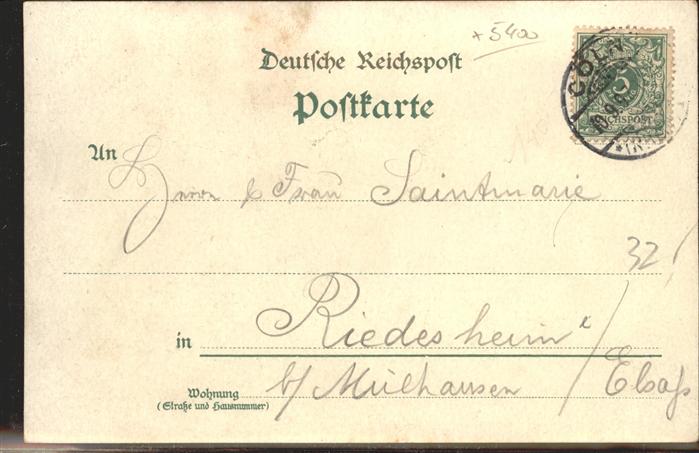 + 5400
Deutsche Reichspost
Postkarte
CÖLN
5
REICHSPOST
An
Herrn & Frau Saintmarie
32
in
Riedesheim i/
Wohnung
(Straße und Hausnummer)
b/ Mülhausen / Elsaß